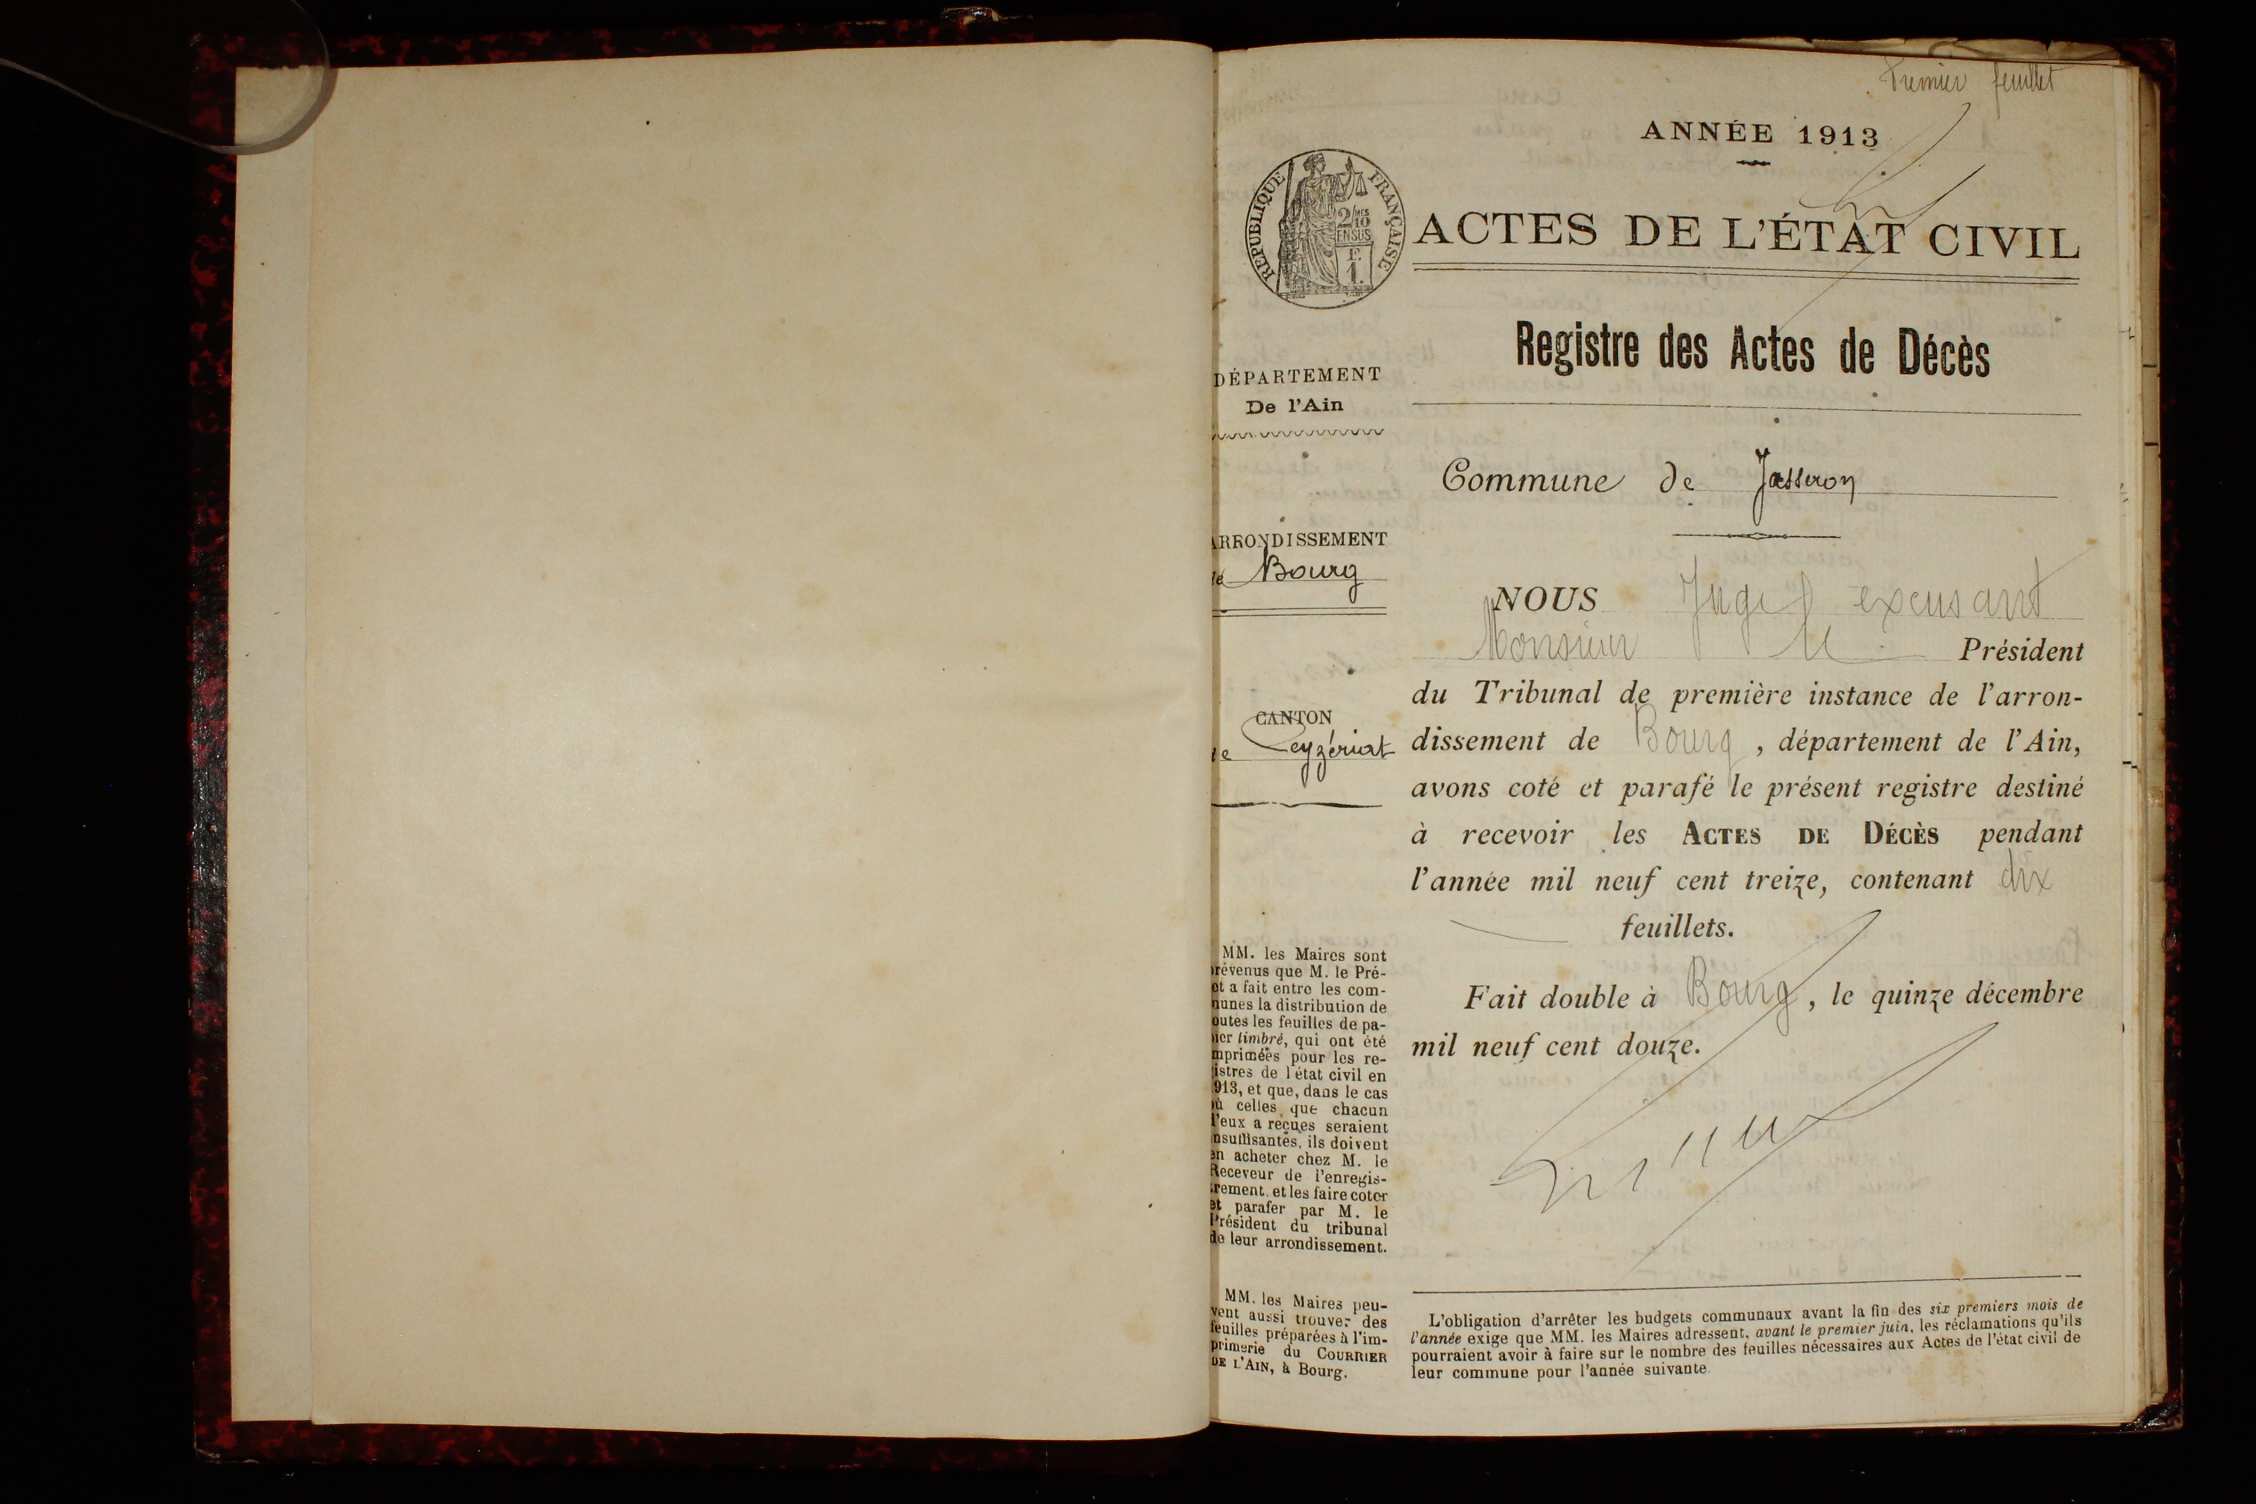 Premier feuillet
ANNÉE 1913
RÉPUBLIQUE FRANÇAISE
2/10
EN SUS
F.
1.
ACTES DE L'ÉTAT CIVIL
Registre des Actes de Décès
DÉPARTEMENT
De l'Ain
Commune de Jasseron
ARRONDISSEMENT
de Bourg
CANTON
de Ceyzériat
NOUS Juge excusant
Monsieur le Président
du Tribunal de première instance de l'arron-
dissement de Bourg, département de l'Ain,
avons coté et parafé le présent registre destiné
à recevoir les ACTES DE DÉCÈS pendant
l'année mil neuf cent treize, contenant dix
feuillets.
Fait double à Bourg, le quinze décembre
mil neuf cent douze.
MM. les Maires sont
prévenus que M. le Pré-
et a fait entre les com-
munes la distribution de
toutes les feuilles de pa-
pier timbré, qui ont été
imprimées pour les re-
gistres de l'état civil en
1913, et que, dans le cas
où celles que chacun
d'eux a reçues seraient
insuffisantes, ils doivent
en acheter chez M. le
Receveur de l'enregis-
trement et les faire coter
et parafer par M. le
Président du tribunal
de leur arrondissement.
MM. les Maires peu-
vent aussi trouver des
feuilles préparées à l'im-
primerie du COURRIER
DE L'AIN, à Bourg.
L'obligation d'arrêter les budgets communaux avant la fin des six premiers mois de
l'année exige que MM. les Maires adressent, avant le premier juin, les réclamations qu'ils
pourraient avoir à faire sur le nombre des feuilles nécessaires aux Actes de l'état civil de
leur commune pour l'année suivante.